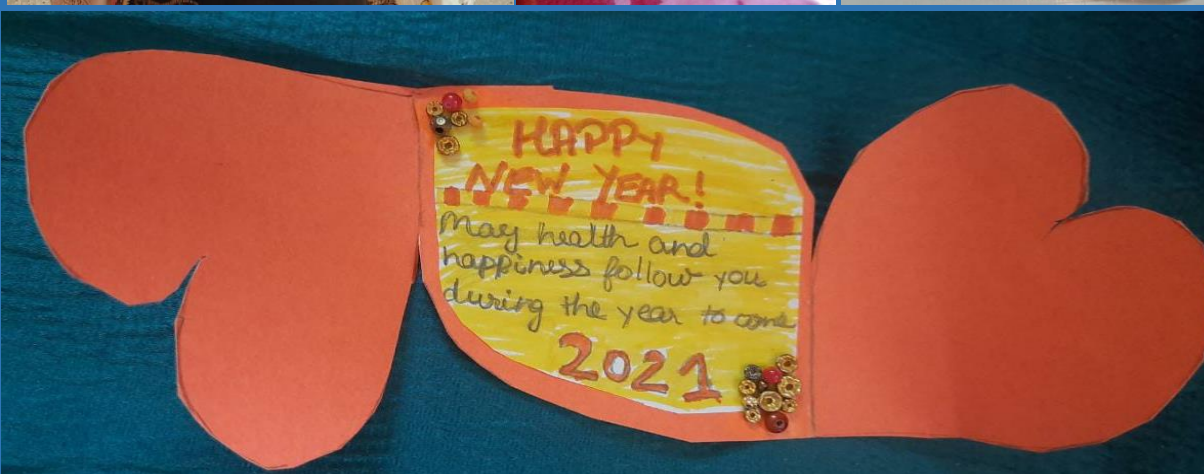 HAPPY
NEW YEAR!
May health and
happiness follow you
during the year to come
2021